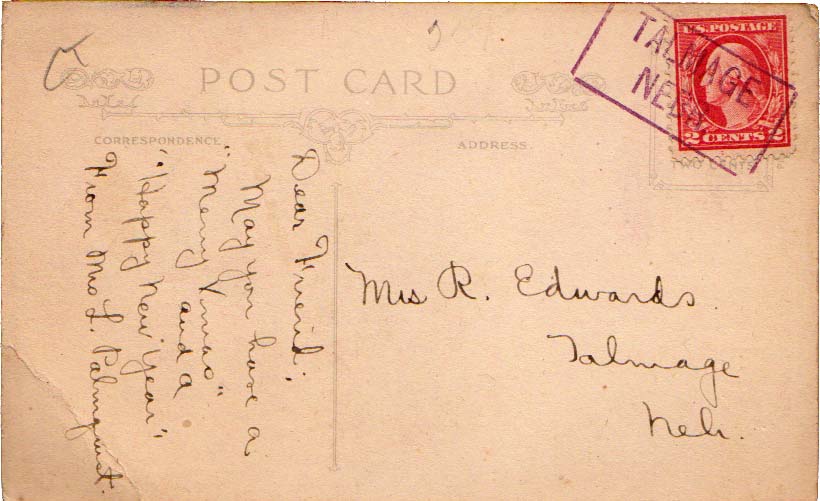 POST CARD
CORRESPONDENCE
ADDRESS.
TALMAGE
NEBR.
U.S. POSTAGE
2 CENTS 2
TWO CENTS
Dear Friend;
May you have a
"Merry Xmas"
and a
"Happy New Year"
From Mrs L. Palmquist.
Mrs R. Edwards.
Talmage
Neb.